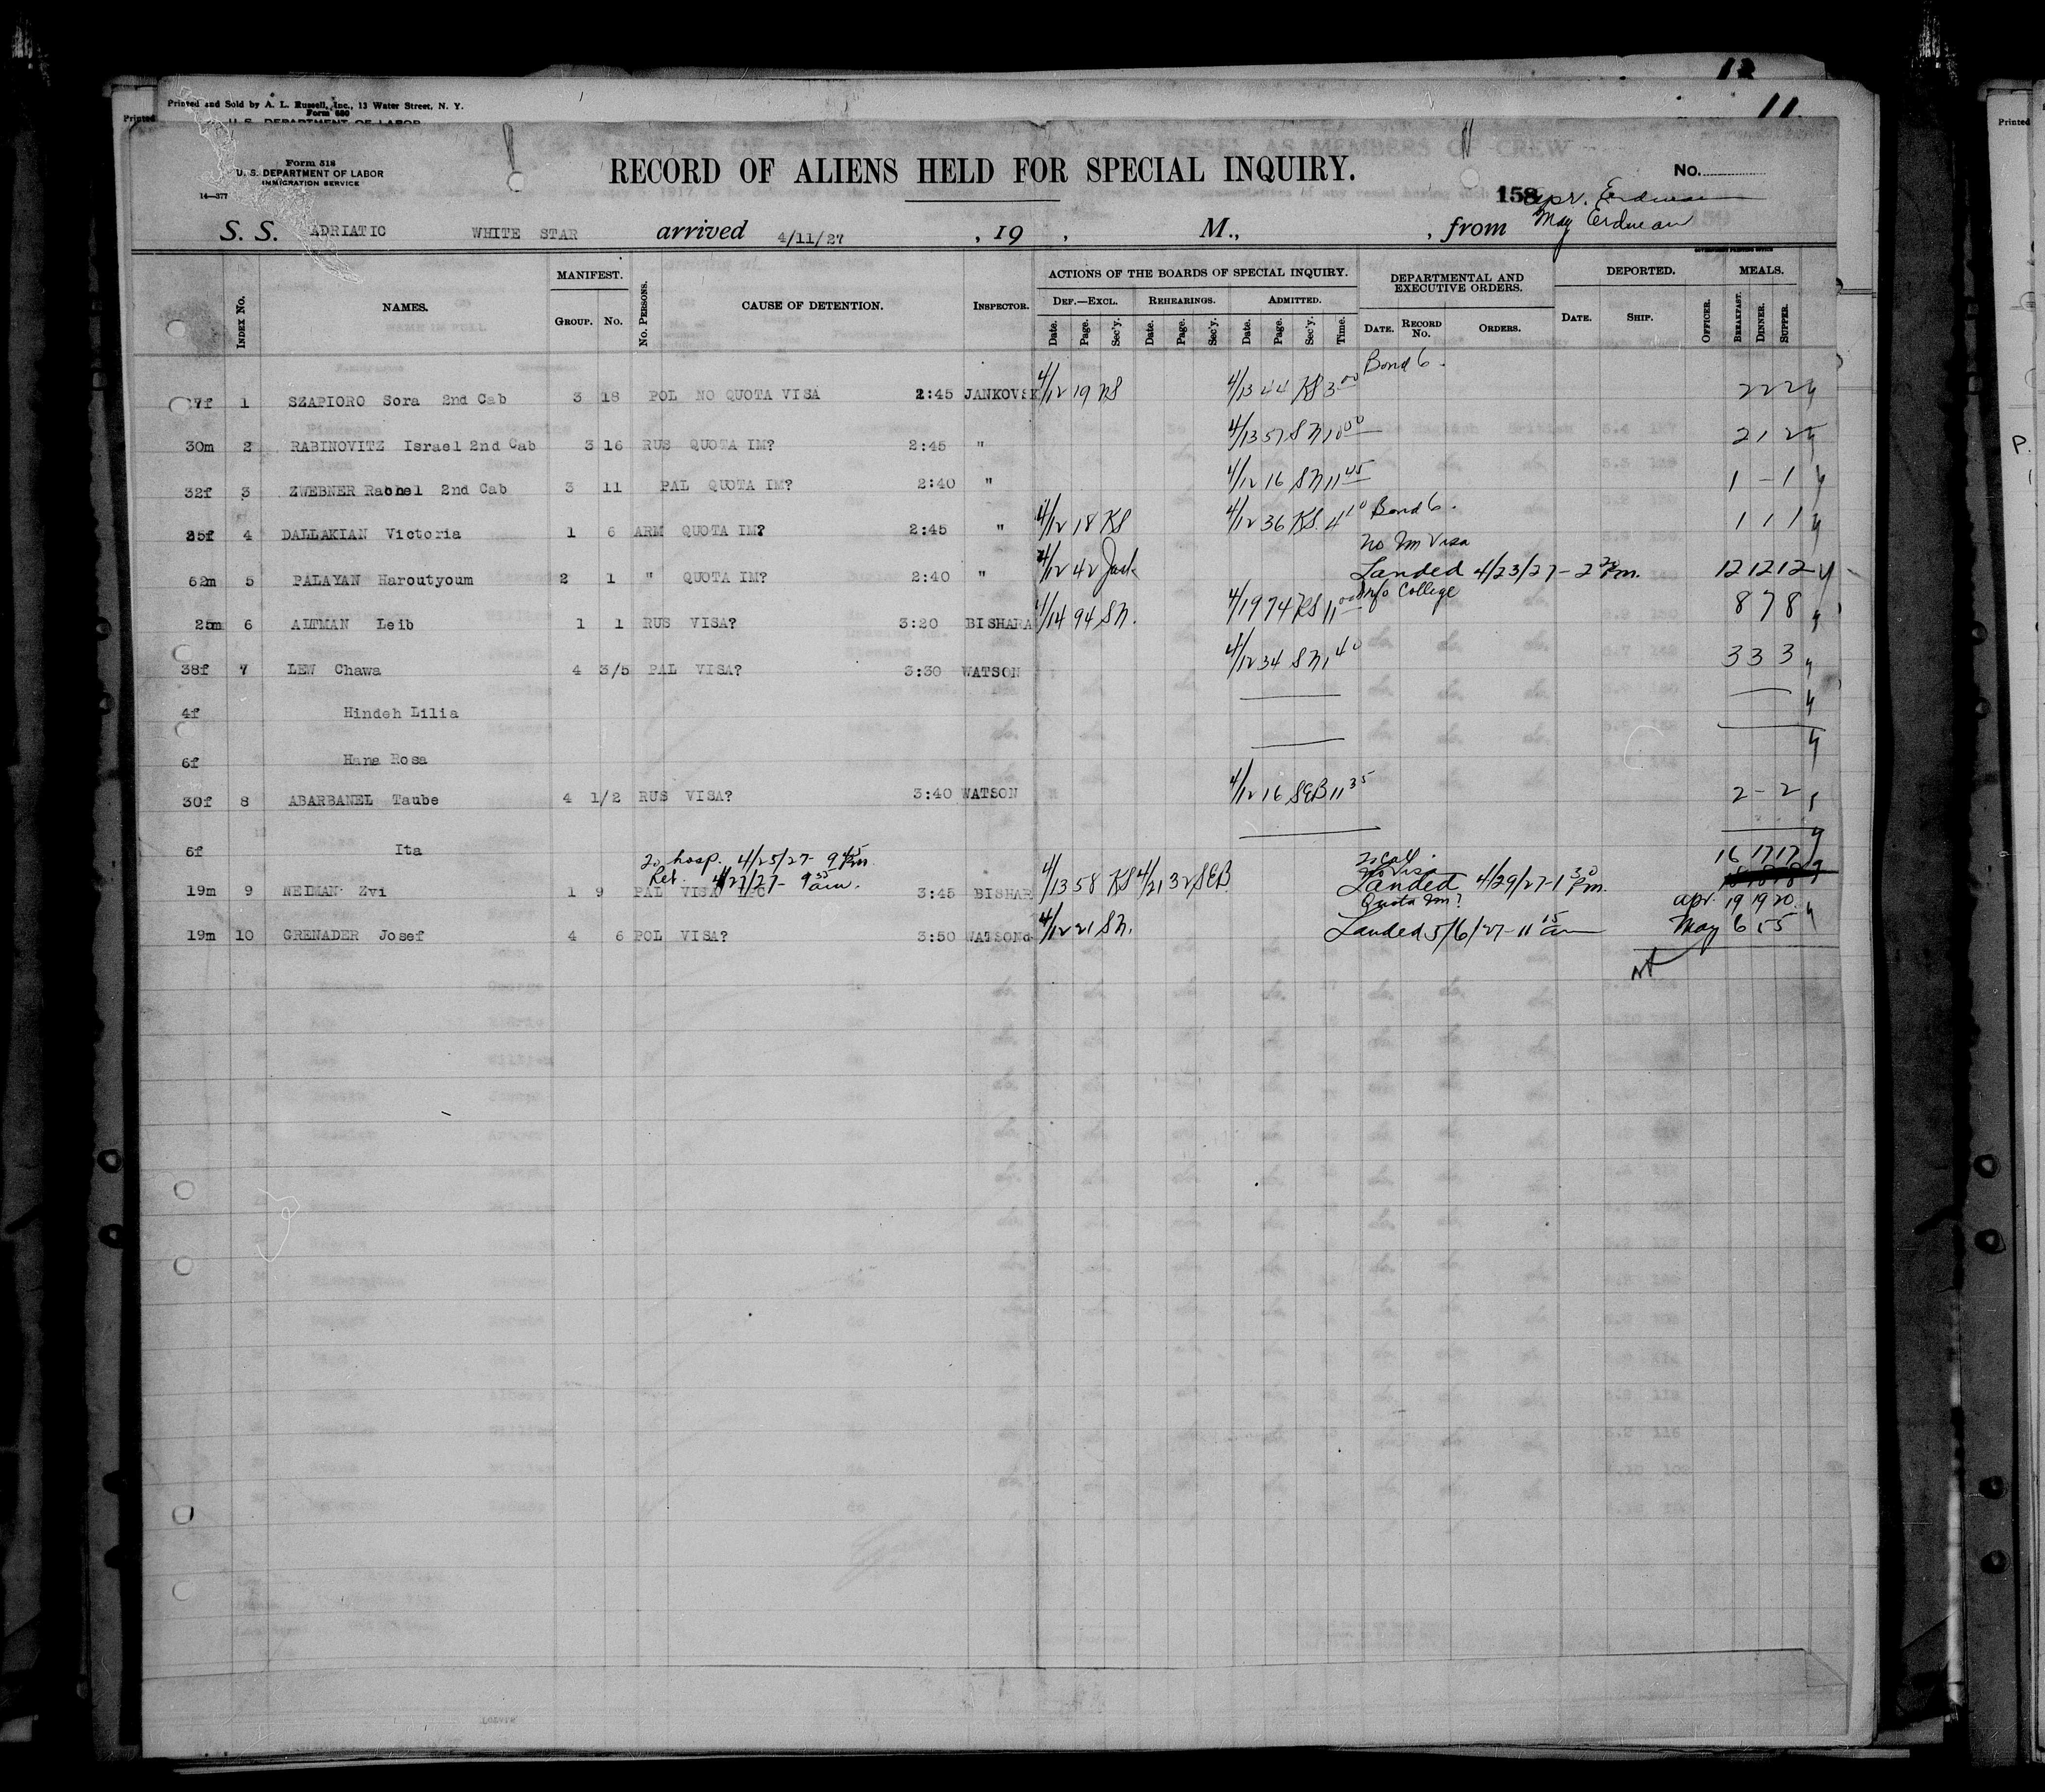 12
Printed and Sold by A. L. Russell, Inc., 13 Water Street, N. Y.
Form 680
11
Printed
U. S. DEPARTMENT OF LABOR
Printed
Form 518
U. S. DEPARTMENT OF LABOR
IMMIGRATION SERVICE
14—377
RECORD OF ALIENS HELD FOR SPECIAL INQUIRY.
No.
158 Apr. Erdman
May Erdman
S. S. ADRIATIC WHITE STAR arrived 4/11/27 , 19 , M., , from
GOVERNMENT PRINTING OFFICE
INDEX No. NAMES. MANIFEST. GROUP. No. No. PERSONS. CAUSE OF DETENTION. INSPECTOR. ACTIONS OF THE BOARDS OF SPECIAL INQUIRY. DEPARTMENTAL AND EXECUTIVE ORDERS. DEPORTED. MEALS.
DEF.—EXCL. REHEARINGS. ADMITTED.
Date. Page. Sec'y. Date. Page. Sec'y. Date. Page. Sec'y. Time. DATE. RECORD No. ORDERS. DATE. SHIP. OFFICER. BREAKFAST. DINNER. SUPPER.
Bond 6.
7f 1 SZAPIORO Sora 2nd Cab 3 18 POL NO QUOTA VISA 2:45 JANKOVSK 4/12 19 KS 4/13 44 KS 3 00 2 2 2
30m 2 RABINOVITZ Israel 2nd Cab 3 16 RUS QUOTA IM? 2:45 " 4/13 57 SN 10 00 2 1 2
32f 3 ZWEBNER Rachel 2nd Cab 3 11 PAL QUOTA IM? 2:40 " 4/12 16 SN 11 45 1 - 1
35f 4 DALLAKIAN Victoria 1 6 ARM QUOTA IM? 2:45 " 4/12 18 KS 4/12 36 KS 4 10 Bond 6. 1 1 1
No Im Visa
62m 5 PALAYAN Haroutyoum 2 1 " QUOTA IM? 2:40 " 4/12 42 Landed 4/23/27 - 2 Pm. 12 12 12
College
25m 6 ALTMAN Leib 1 1 RUS VISA? 3:20 BISHARA 4/14 94 SN. 4/19 74 KS 11 00 8 7 8
38f 7 LEW Chawa 4 3/5 PAL VISA? 3:30 WATSON 4/12 34 SN 1 40 3 3 3
4f Hindeh Lilia
6f Hana Rosa
30f 8 ABARBANEL Taube 4 1/2 RUS VISA? 3:40 WATSON 4/12 16 SEB 11 35 2 - 2
6f Ita
To hosp. 4/25/27 - 9 45 Pm.
16 17 17
Ret. 4/27/27 - 9 am.
No Visa
19m 9 NEIMAN Zvi 1 9 PAL VISA LPC 3:45 BISHAR 4/13 58 KS 4/21 32 SEB Landed 4/29/27 - 1 30 Pm.
Quota Im? Apr. 19 19 20
19m 10 GRENADER Josef 4 6 POL VISA? 3:50 WATSON 4/12 21 SN. Landed 5/6/27 - 11 15 am May 6 5 5